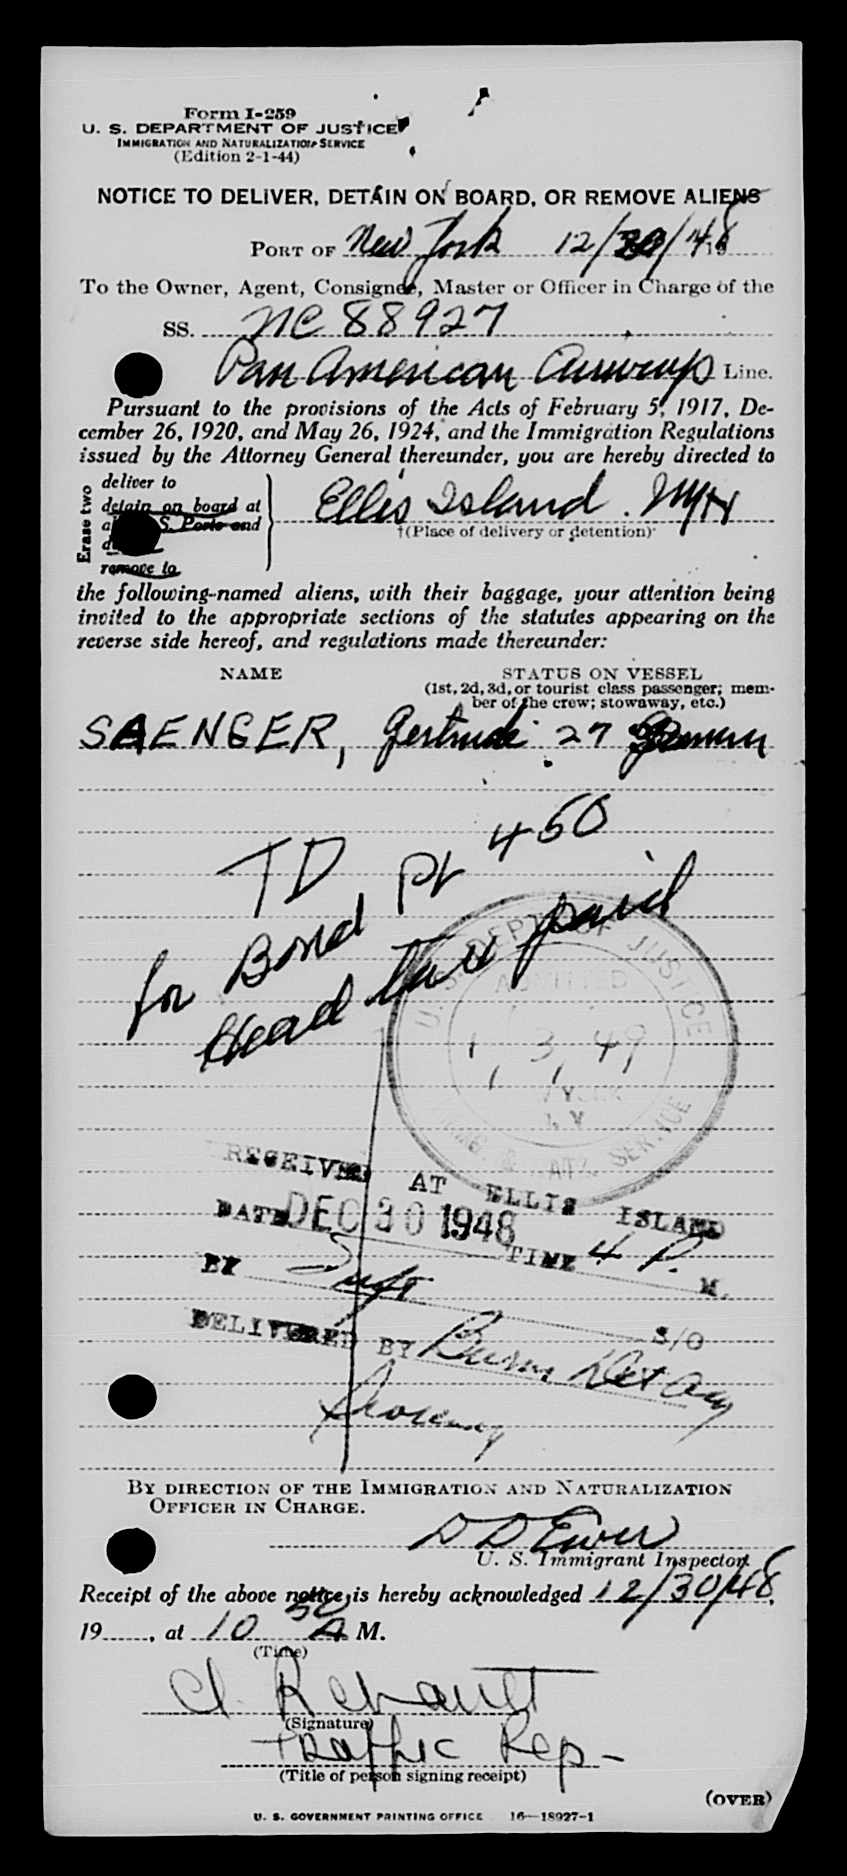 Form I-259
U. S. DEPARTMENT OF JUSTICE
IMMIGRATION AND NATURALIZATION SERVICE
(Edition 2-1-44)
NOTICE TO DELIVER, DETAIN ON BOARD, OR REMOVE ALIENS
PORT OF New York 12/30/48 19
To the Owner, Agent, Consignee, Master or Officer in Charge of the
SS. NC 88927
Pan American Airways Line.
Pursuant to the provisions of the Acts of February 5, 1917, De-
cember 26, 1920, and May 26, 1924, and the Immigration Regulations
issued by the Attorney General thereunder, you are hereby directed to
Erase two
deliver to
detain on board at
S. Ports and
remove to
Ellis Island. NYH
†(Place of delivery or detention)
the following-named aliens, with their baggage, your attention being
invited to the appropriate sections of the statutes appearing on the
reverse side hereof, and regulations made thereunder:
NAME STATUS ON VESSEL
(1st, 2d, 3d, or tourist class passenger; mem-
ber of the crew; stowaway, etc.)
SAENGER, Gertrude 27 German
TD
for Bond Pt 450
Head Tax paid
U. S. DEPT. OF JUSTICE
ADMITTED
1, 3, 49
N Y
SERVICE
RECEIVED AT ELLIS ISLAND
DATE DEC 30 1948 TIME 4 P. M.
BY S/O
DELIVERED BY Burns Det Acy
BY DIRECTION OF THE IMMIGRATION AND NATURALIZATION
OFFICER IN CHARGE.
D D Ewer
U. S. Immigrant Inspector.
Receipt of the above notice is hereby acknowledged 12/30/48,
19......, at 10 50 A M.
(Time)
(Signature)
Traffic Rep-
(Title of person signing receipt)
(OVER)
U. S. GOVERNMENT PRINTING OFFICE 16—18927-1